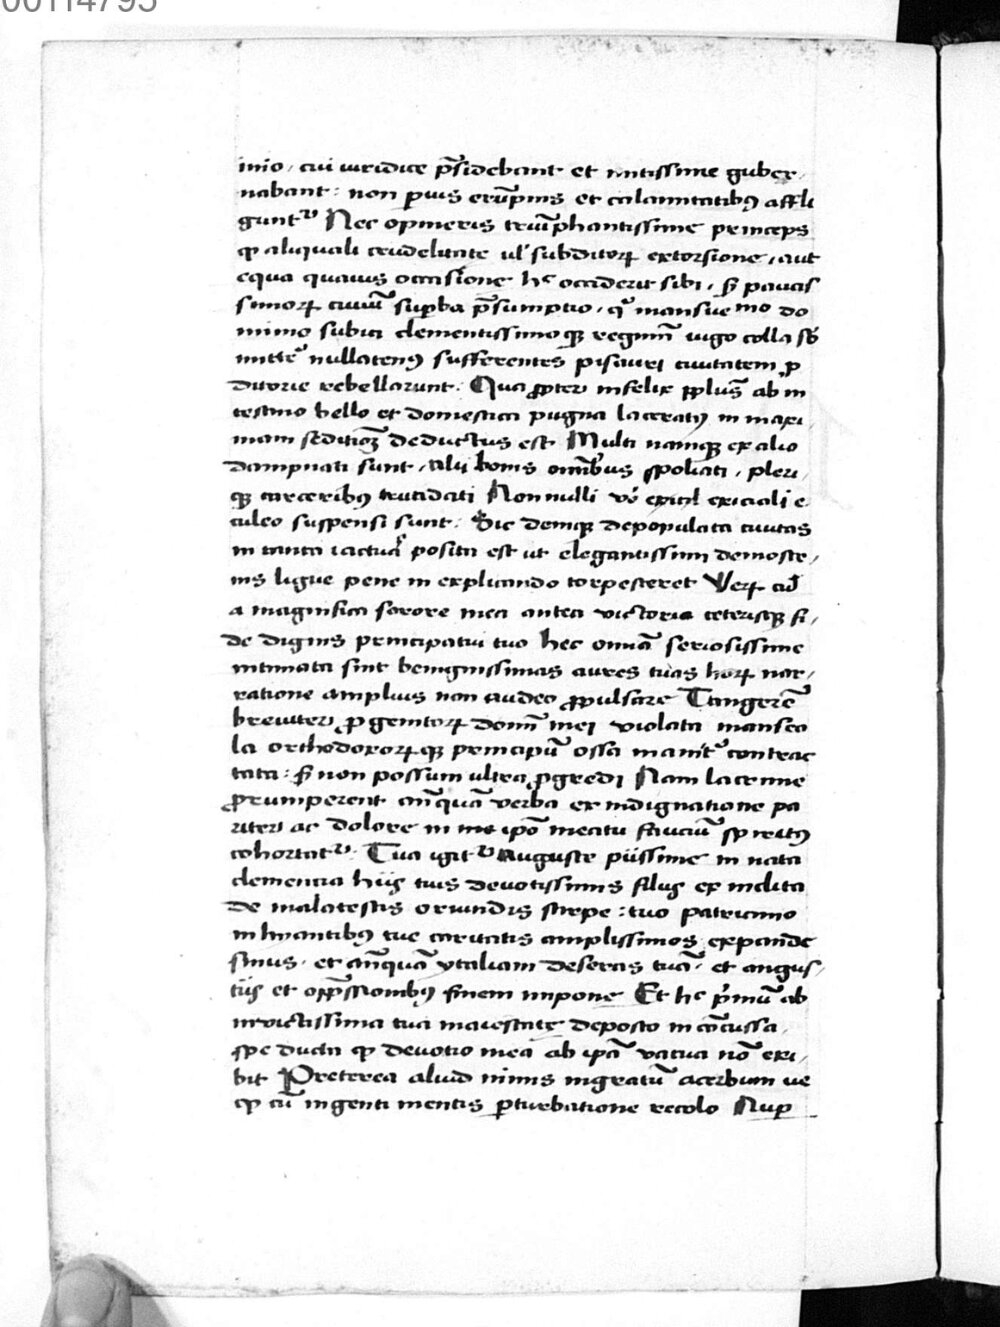 00114795
inio, cui iuridice p̄sidebant et mitissime guber,
nabant: non pruis erūpnis et calamitatibꝫ affli
guntᷣ Nec opineris triūphantissime princeps
ꝙ aliquali crudelitate ul' subditoꝝ extorsione, aut
equa quauis occasione hͨ occiderit sibi, sꝫ paucis
simoꝝ ciuiū supba p̄sumptio, qͥ mansue mo do
mino subici clementissimo qꝫ regimī iugo colla sb̄
mittē nullatenꝰ sufferentes pisauri ciuitatem ꝓ
ditorie rebellarunt. Qua ꝓpter infelix pplus̄ ab in
testino bello et domestica pugna laceratꝰ in maxi,
mam seditioꝫ deductus est Multi namqꝫ ex alio
dampnati sunt, alij bonis omībus spoliati, pleri,
qꝫ carceribꝫ trucidati Non nulli vͦ exiciali e
culeo suspensi sunt. Sic demiqꝫ depopulata ciuitas
in tanta iactura posita est ut elegantissimi demoste,
nis ligue pene in explicando torpesceret Veꝝ cū
a magnifica sorore mea antea victoria ceterisqꝫ fi,
de dignis principatui tuo hec omia seriosissime
intimata sint benignissimas aures tuas hoꝝ nar,
ratione amplius non audeo ꝓpulsare Tangerē
breuiter ꝓgenitoꝝ domī mei violata manseo
la orthodoxoꝝ qꝫ principū ossa manitᷣ contrac
tata: sꝫ non possum ultra ꝓgredi Nam lacrime
ꝓrumperent anqͣ verba ex indignatione pa
riter ac dolore in me ipō meatu fauciū spiritꝰ
cohortatᷣ. Tua igitᷣ Auguste piissime in nata
clementia hijs tuis deuotissimis filijs ex inclita
de malatestis oriundis stirpe: tuo patrimonio
inhiantibꝫ tue caritatis amplissimos expande
sinus, et anqͣ ytaliam deseras tuā, et angus,
tijs et opp̄ssionibꝫ finem impone Et hͨ pͥmū ab
inuictissima tua maiestate deposto inconcussa,
spe ducta ꝙ deuotio mea ab ipā vacua nō exi,
bit Preterea aliud nimis ingratū acerbum ue
ꝙ cū ingenti mentis pturbatione recolo Nup